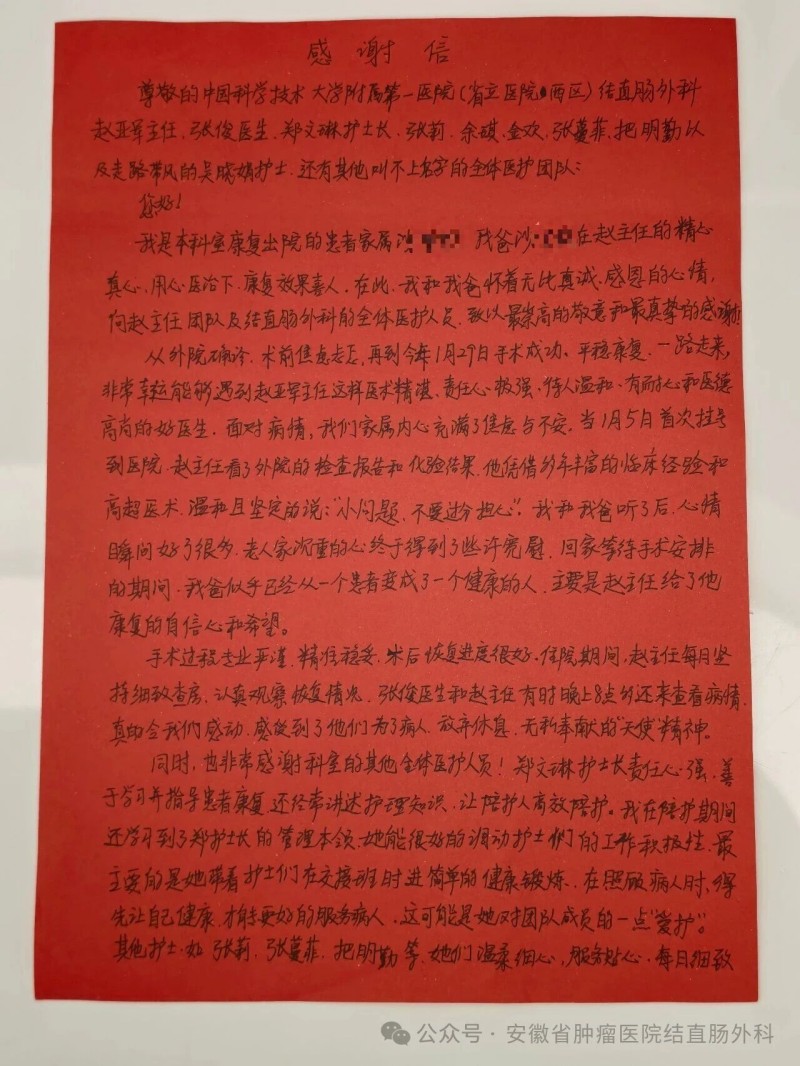 感谢信
尊敬的中国科学技术大学附属第一医院(省立医院西区)结直肠外科
赵亚军主任、张俊医生、郑文琳护士长、张莉、余琪、金欢、张蔓菲、把明勤以
及走路带风的吴晓娟护士、还有其他叫不上名字的全体医护团队:
您好!
我是本科室康复出院的患者家属沙 我爸沙 在赵主任的精心
真心、用心医治下、康复效果喜人、在此、我和我爸怀着无比真诚、感恩的心情,
向赵主任团队及结直肠外科的全体医护人员、致以最崇高的敬意和最真挚的感谢!
从外院确诊、术前焦虑 、再到今年1月29日手术成功、平稳康复、一路走来,
非常幸运能够遇到赵亚军主任这样医术精湛、责任心极强、待人温和、有耐心和医德
高尚的好医生、面对病情,我们家属内心充满了焦虑与不安、当1月5日首次挂号
到医院、赵主任看了外院的检查报告和化验结果、他凭借多年丰富的临床经验和
高超医术、温和且坚定的说:“小问题、不要过分担心”、我和我爸听了后、心情
瞬间好了很多、老人家沉重的心终于得到了些许宽慰、回家等待手术安排
的期间、我爸似乎已经从一个患者变成了一个健康的人、主要是赵主任给了他
康复的自信心和希望。
手术过程专业严谨、精准稳妥、术后恢复进度很好、住院期间,赵主任每日坚
持细致查房、认真观察恢复情况、张俊医生和赵主任有时晚上8点多还来查看病情、
真的令我们感动、感受到了他们为了病人、放弃休息、无私奉献的“天使”精神。
同时、也非常感谢科室的其他全体医护人员!郑文琳护士长责任心强、善
于学习并指导患者康复、还经常讲述护理知识、让陪护人高效陪护。我在陪护期间
还学习到了郑护士长的管理本领、她能很好的调动护士们的工作积极性、最
主要的是她带着护士们在交接班时进简单的健康锻炼、在照顾病人时,得
先让自己健康、才能更好的服务病人、这可能是她对团队成员的一点“爱护”。
其他护士、如张莉、张蔓菲、把明勤等、她们温柔细心、服务贴心、每日细致
公众号·安徽省肿瘤医院结直肠外科